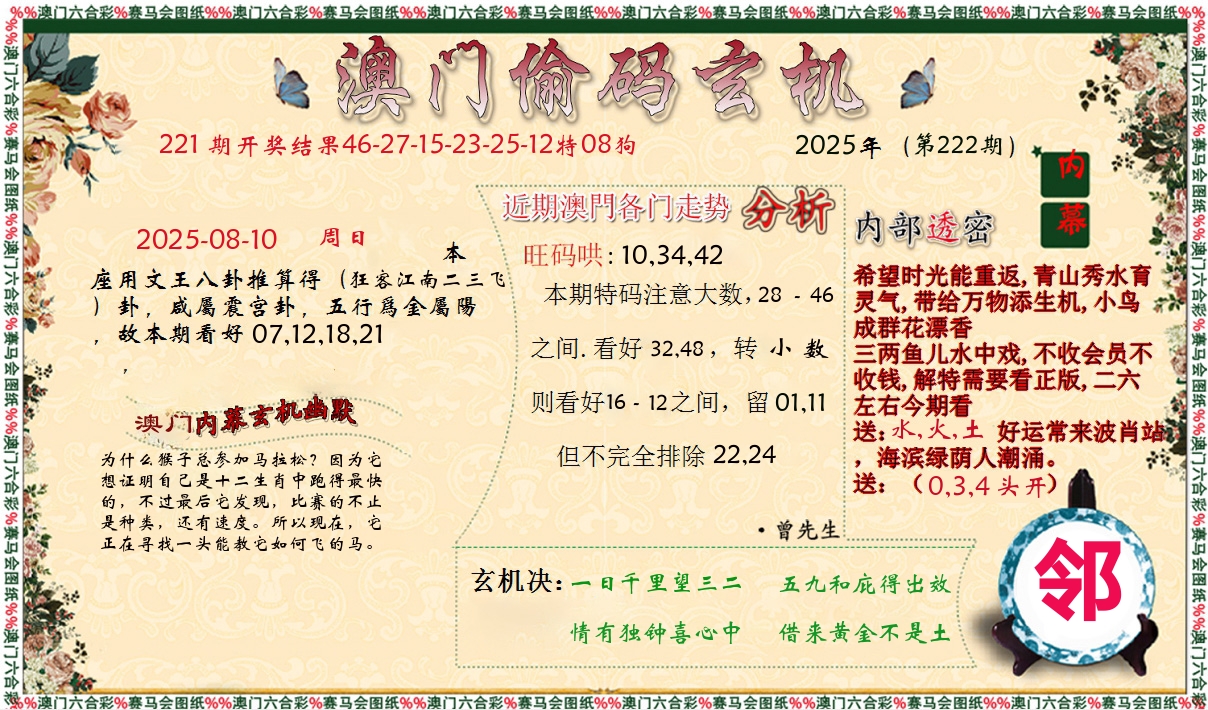 %%澳门六合彩%赛马会图纸%%澳门六合彩%赛马会图纸%%澳门六合彩%赛马会图纸%%澳门六合彩%赛马会图纸%%澳门六合彩%赛马会图纸%%澳门六合彩%赛马会图纸%%
澳门偷码玄机
221 期开奖结果46-27-15-23-25-12特08狗
2025年（第222期）
内幕
2025-08-10 周日
本
座用文王八卦推算得（狂客江南二三飞
）卦，咸屬震宫卦，五行爲金屬陽
，故本期看好 07,12,18,21
，
澳门内幕玄机幽默
为什么猴子总参加马拉松？因为它
想证明自己是十二生肖中跑得最快
的，不过最后它发现，比赛的不止
是种类，还有速度。所以现在，它
正在寻找一头能教它如何飞的马。
近期澳門各门走势 分析
旺码哄: 10,34,42
本期特码注意大数, 28 - 46
之间. 看好 32,48 , 转 小 数
则看好16 - 12之间，留 01,11
但不完全排除 22,24
·曾先生
内部透密
希望时光能重返, 青山秀水育
灵气, 带给万物添生机, 小鸟
成群花漂香
三两鱼儿水中戏, 不收会员不
收钱, 解特需要看正版, 二六
左右今期看
送: 水, 火, 土 好运常来波肖站
，海滨绿荫人潮涌。
送: （0,3,4 头开）
玄机决: 一日千里望三二 五九和庇得出效
情有独钟喜心中 借来黄金不是土
邻
%%澳门六合彩%赛马会图纸%%澳门六合彩%赛马会图纸%%澳门六合彩%赛马会图纸%%澳门六合彩%赛马会图纸%%澳门六合彩%赛马会图纸%%澳门六合彩%赛马会图纸%%